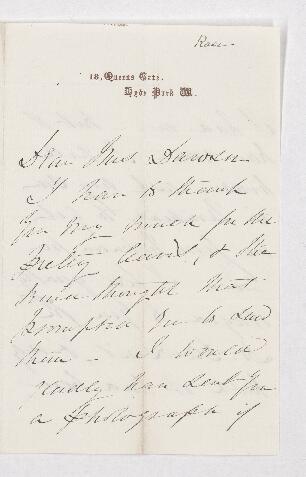 Rose
18, Queens Gate,
Hyde Park W.
Dear Mrs. Dawson
I have to thank
you very much for the
pretty cards, & the
kind thought that
prompted you to send
them - I would
gladly have sent you
a photograph if